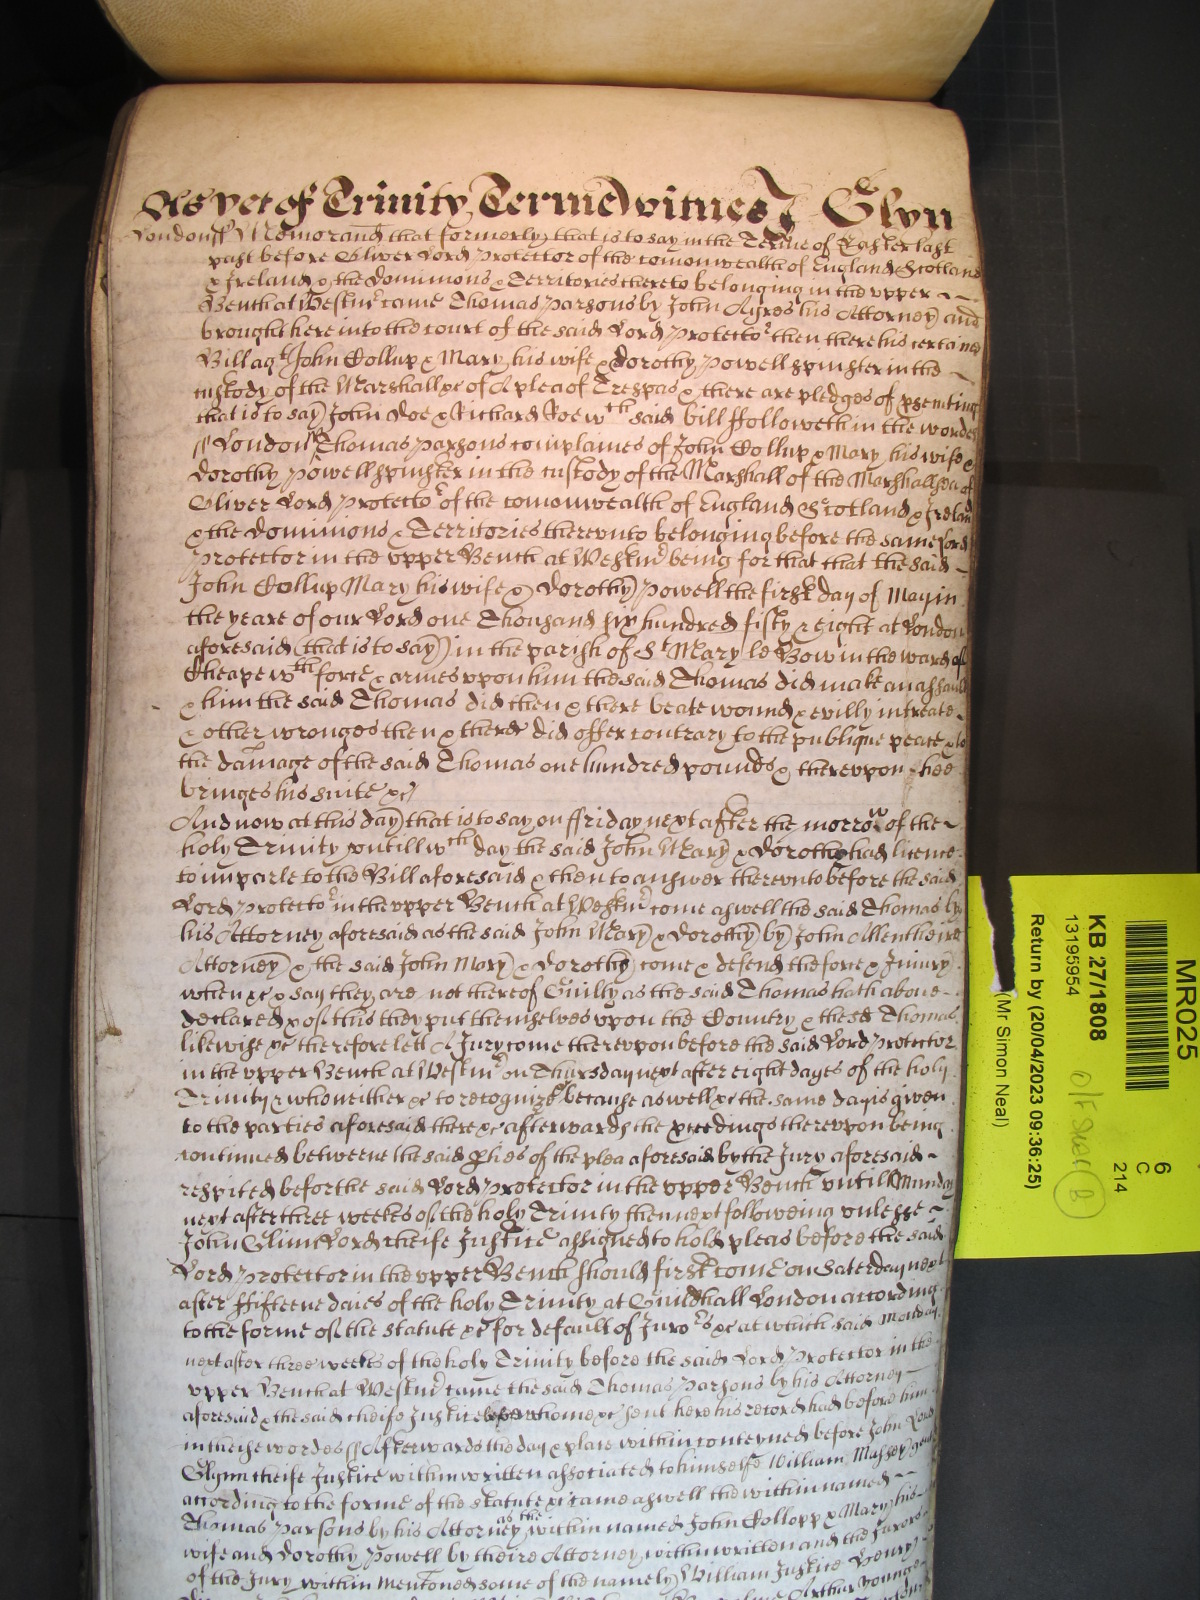 As yet of Trinity Terme witnes J Glyn
London ss Memorand that formerly that is to say in the Terme of Easter last
past before Oliver Lord Protector of the comonwealth of England Scotland
& Ireland & the Dominions & Territories thereto belonging in the upper
Bench at Westmr came Thomas Parsons by John Ayres his Attorney and
brought here into the court of the said Lord Protector then there his certaine
Bill agt John Collup & Mary his wife & Dorothy Powell spinster in the
custody of the Marshall &c of A plea of Trespas & there are pledges of psenting
that is to say John Doe & Richard Roe wch said bill ffolloweth in these wordes
ss London ss Thomas Parsons complaines of John Collup & Mary his wife &
Dorothy Powell spinster in the custody of the Marshall of the Marshallsea of
Oliver Lord Protector of the comonwealth of England Scotland & Ireland
& the Dominions & Territories therevnto belonging before the same Lord
Protector in the vpper Bench at Westmr being for that that the said
John Collup Mary his wife & Dorothy Powell the first day of May in
the yeare of our Lord one Thousand six hundred fifty & eight at London
aforesaid (that is to say) in the parish of St Mary le Bow in the ward of
Cheape wth force & armes vpon him the said Thomas did make an assault
& him the said Thomas did then & there beate wound & evilly intreate
& other wronges then & there did offer contrary to the publique peace & to
the damage of the said Thomas one hundred pounds & therevpon hee
bringes his suite &c
And now at this day that is to say on ffriday next after the morrow of the
holy Trinity vntill wch day the said John Mary & Dorothy had licence
to imparle to the Bill aforesaid & then to answer therevnto before the said
Lord Protector in the vpper Bench at Westmr come aswell the said Thomas by
his Attorney aforesaid as the said John Mary & Dorothy by John Allen theire
Attorney & the said John Mary & Dorothy come & defend the force & Iniury
when &c & say they are not thereof Guilty as the said Thomas hath above
declared & of this they put themselves vpon the Country & the sd Thomas
likewise &c therefore lett A Jury come therevpon before the said Lord Protector
in the vpper Bench at Westmr on Thursday next after eight dayes of the holy
Trinity & who neither &c to recognize &c because aswell &c the same day is given
to the parties aforesaid there &c afterwards the pceedings therevpon being
continued betweene the said pties of the plea aforesaid by the Jury aforesaid
respited before the said Lord Protector in the vpper Bench vntill Munday
next after three weekes of the holy Trinity then next following vnlesse
John Glinn Lord cheife Justice assigned to hold pleas before the said
Lord Protector in the vpper Bench should first come on Saterday next
after ffifteene daies of the holy Trinity at Guildhall London according
to the forme of the statute &c for default of Jurors &c at which said Monday
next after three weekes of the holy Trinity before the said Lord Protector in the
vpper Bench at Westmr came the said Thomas Parsons by his Attorney
aforesaid & the said cheife Justice before whome &c sent here his record had before him
in these wordes ss Afterwards the day & place within conteyned before John Lord
Glynn cheife Justice within written associated to himselfe William Massey gent
according to the forme of the statute &c came aswell the within named
Thomas Parsons by his Attorney as the within named John Collopp & Mary his
wife and Dorothy Powell by theire Attorney within written and the Jurors
of the Jury within mentoned some of the namely William Justice Henry
Arthur Younge
MR025
6
C
214
KB 27/1808
13195954
Return by (20/04/2023 09:36:25)
(Mr Simon Neal)
B